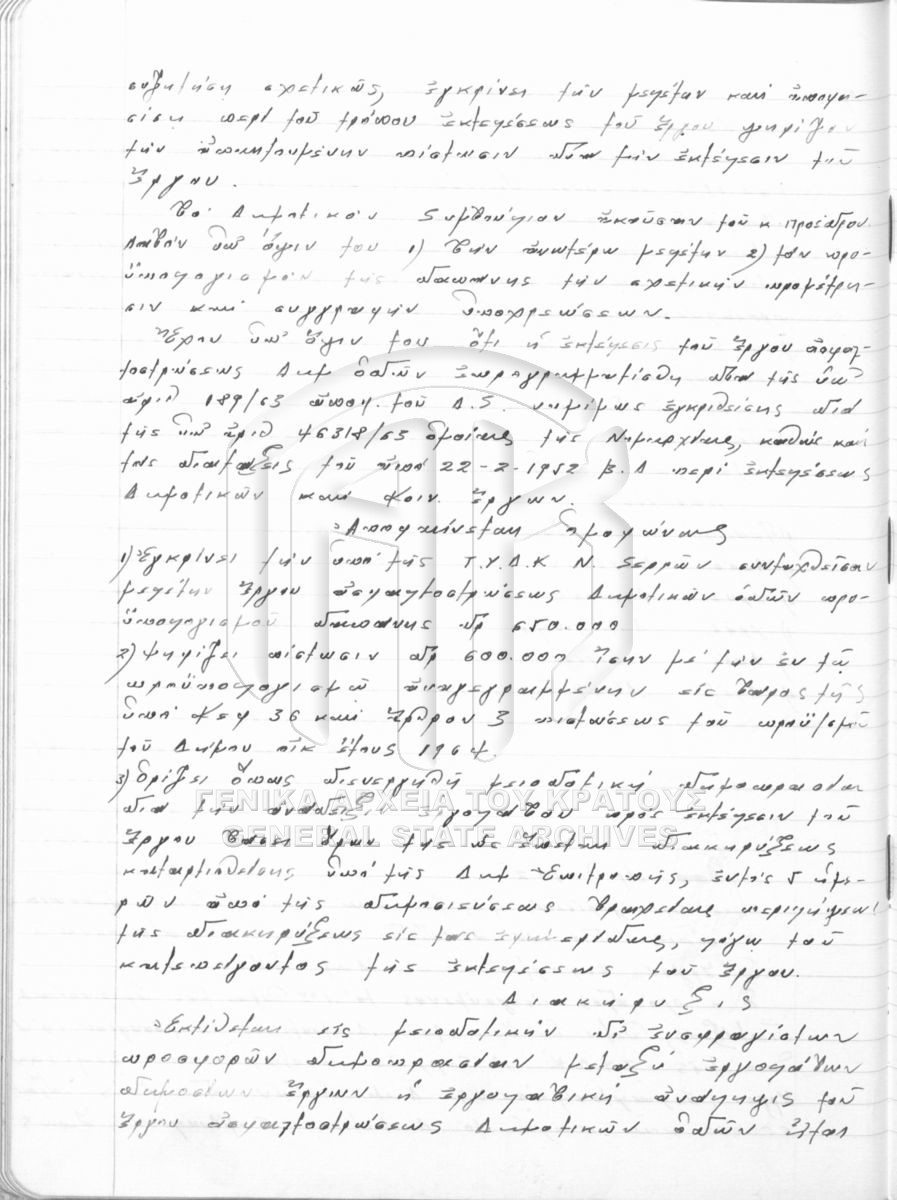 συζήτησιν σχετικῶς, ἐγκρίνει τήν μελέτην καί ἀποφα-
σίση περί τοῦ τρόπου ἐκτελέσεως τοῦ ἔργου ψηφίζον
τήν ἀπαιτουμένην πίστωσιν διά τήν ἐκτέλεσιν τοῦ
ἔργου.
Τό Δημοτικόν Συμβούλιον ἀκοῦσαν τοῦ κ. Προέδρου
Λαβόν ὑπ' ὄψιν του 1) τήν ἀνωτέρω μελέτην 2) τόν προ-
ϋπολογισμόν τῆς δαπάνης τήν σχετικήν προμέτρη-
σιν καί συγγραφήν ὑποχρεώσεων.
Ἔχον ὑπ' ὄψιν του ὅτι ἡ ἐκτέλεσις τοῦ ἔργου ἀσφαλ-
τοστρώσεως Δημ ὁδῶν ἐπρογραμματίσθη διά τῆς ὑπ'
ἀριθ 189/63 ἀποφ. τοῦ Δ.Σ. νομίμως ἐγκριθείσης διά
τῆς ὑπ' ἀριθ 46318/63 ὁμοίας τῆς Νομαρχίας, καθώς καί
τάς διατάξεις τοῦ ἀπό 22-2-1952 Β.Δ περί ἐκτελέσεως
Δημοτικῶν καί Κοιν. ἔργων.
Ἀποφαίνεται ὁμοφώνως
1) Ἐγκρίνει τήν ὑπό τῆς Τ.Υ.Δ.Κ Ν. Σερρῶν συνταχθεῖσαν
μελέτην ἔργου ἀσφαλτοστρώσεως Δημοτικῶν ὁδῶν προ-
ϋπολογισμοῦ δαπάνης δρ 650.000
2) Ψηφίζει πίστωσιν δρ 600.000 ἴσην μέ τήν ἐν τῷ
προϋπολογισμῷ ἀναγεγραμμένην εἰς βάρος τῆς
ὑπό Κεφ 36 καί ἄρθρον 3 πιστώσεως τοῦ προϋ/σμοῦ
τοῦ Δήμου οἰκ ἔτους 1964.
3) Ὁρίζει ὅπως διενεργηθῇ μειοδοτική δημοπρασία
διά τήν ἀνάδειξιν ἐργολάβου πρός ἐκτέλεσιν τοῦ
ἔργου βάσει ὅρων τῆς ὡς ἕπεται διακηρύξεως
καταρτισθείσης ὑπό τῆς Δημ Ἐπιτροπῆς, ἐντός 5 ἡμε-
ρῶν ἀπό τῆς δημοσιεύσεως βραχείας περιλήψεως
τῆς διακηρύξεως εἰς τάς ἐφημερίδας, λόγῳ τοῦ
κατεπείγοντος τῆς ἐκτελέσεως τοῦ ἔργου.
Διακήρυξις
Ἐκτίθεται εἰς μειοδοτικήν δι' ἐνσφραγίστων
προσφορῶν δημοπρασίαν μεταξύ ἐργολάβων
δημοσίων ἔργων ἡ ἐργολαβική ἀνάληψις τοῦ
ἔργου ἀσφαλτοστρώσεως Δημοτικῶν ὁδῶν
ΓΕΝΙΚΑ ΑΡΧΕΙΑ ΤΟΥ ΚΡΑΤΟΥΣ
GENERAL STATE ARCHIVES